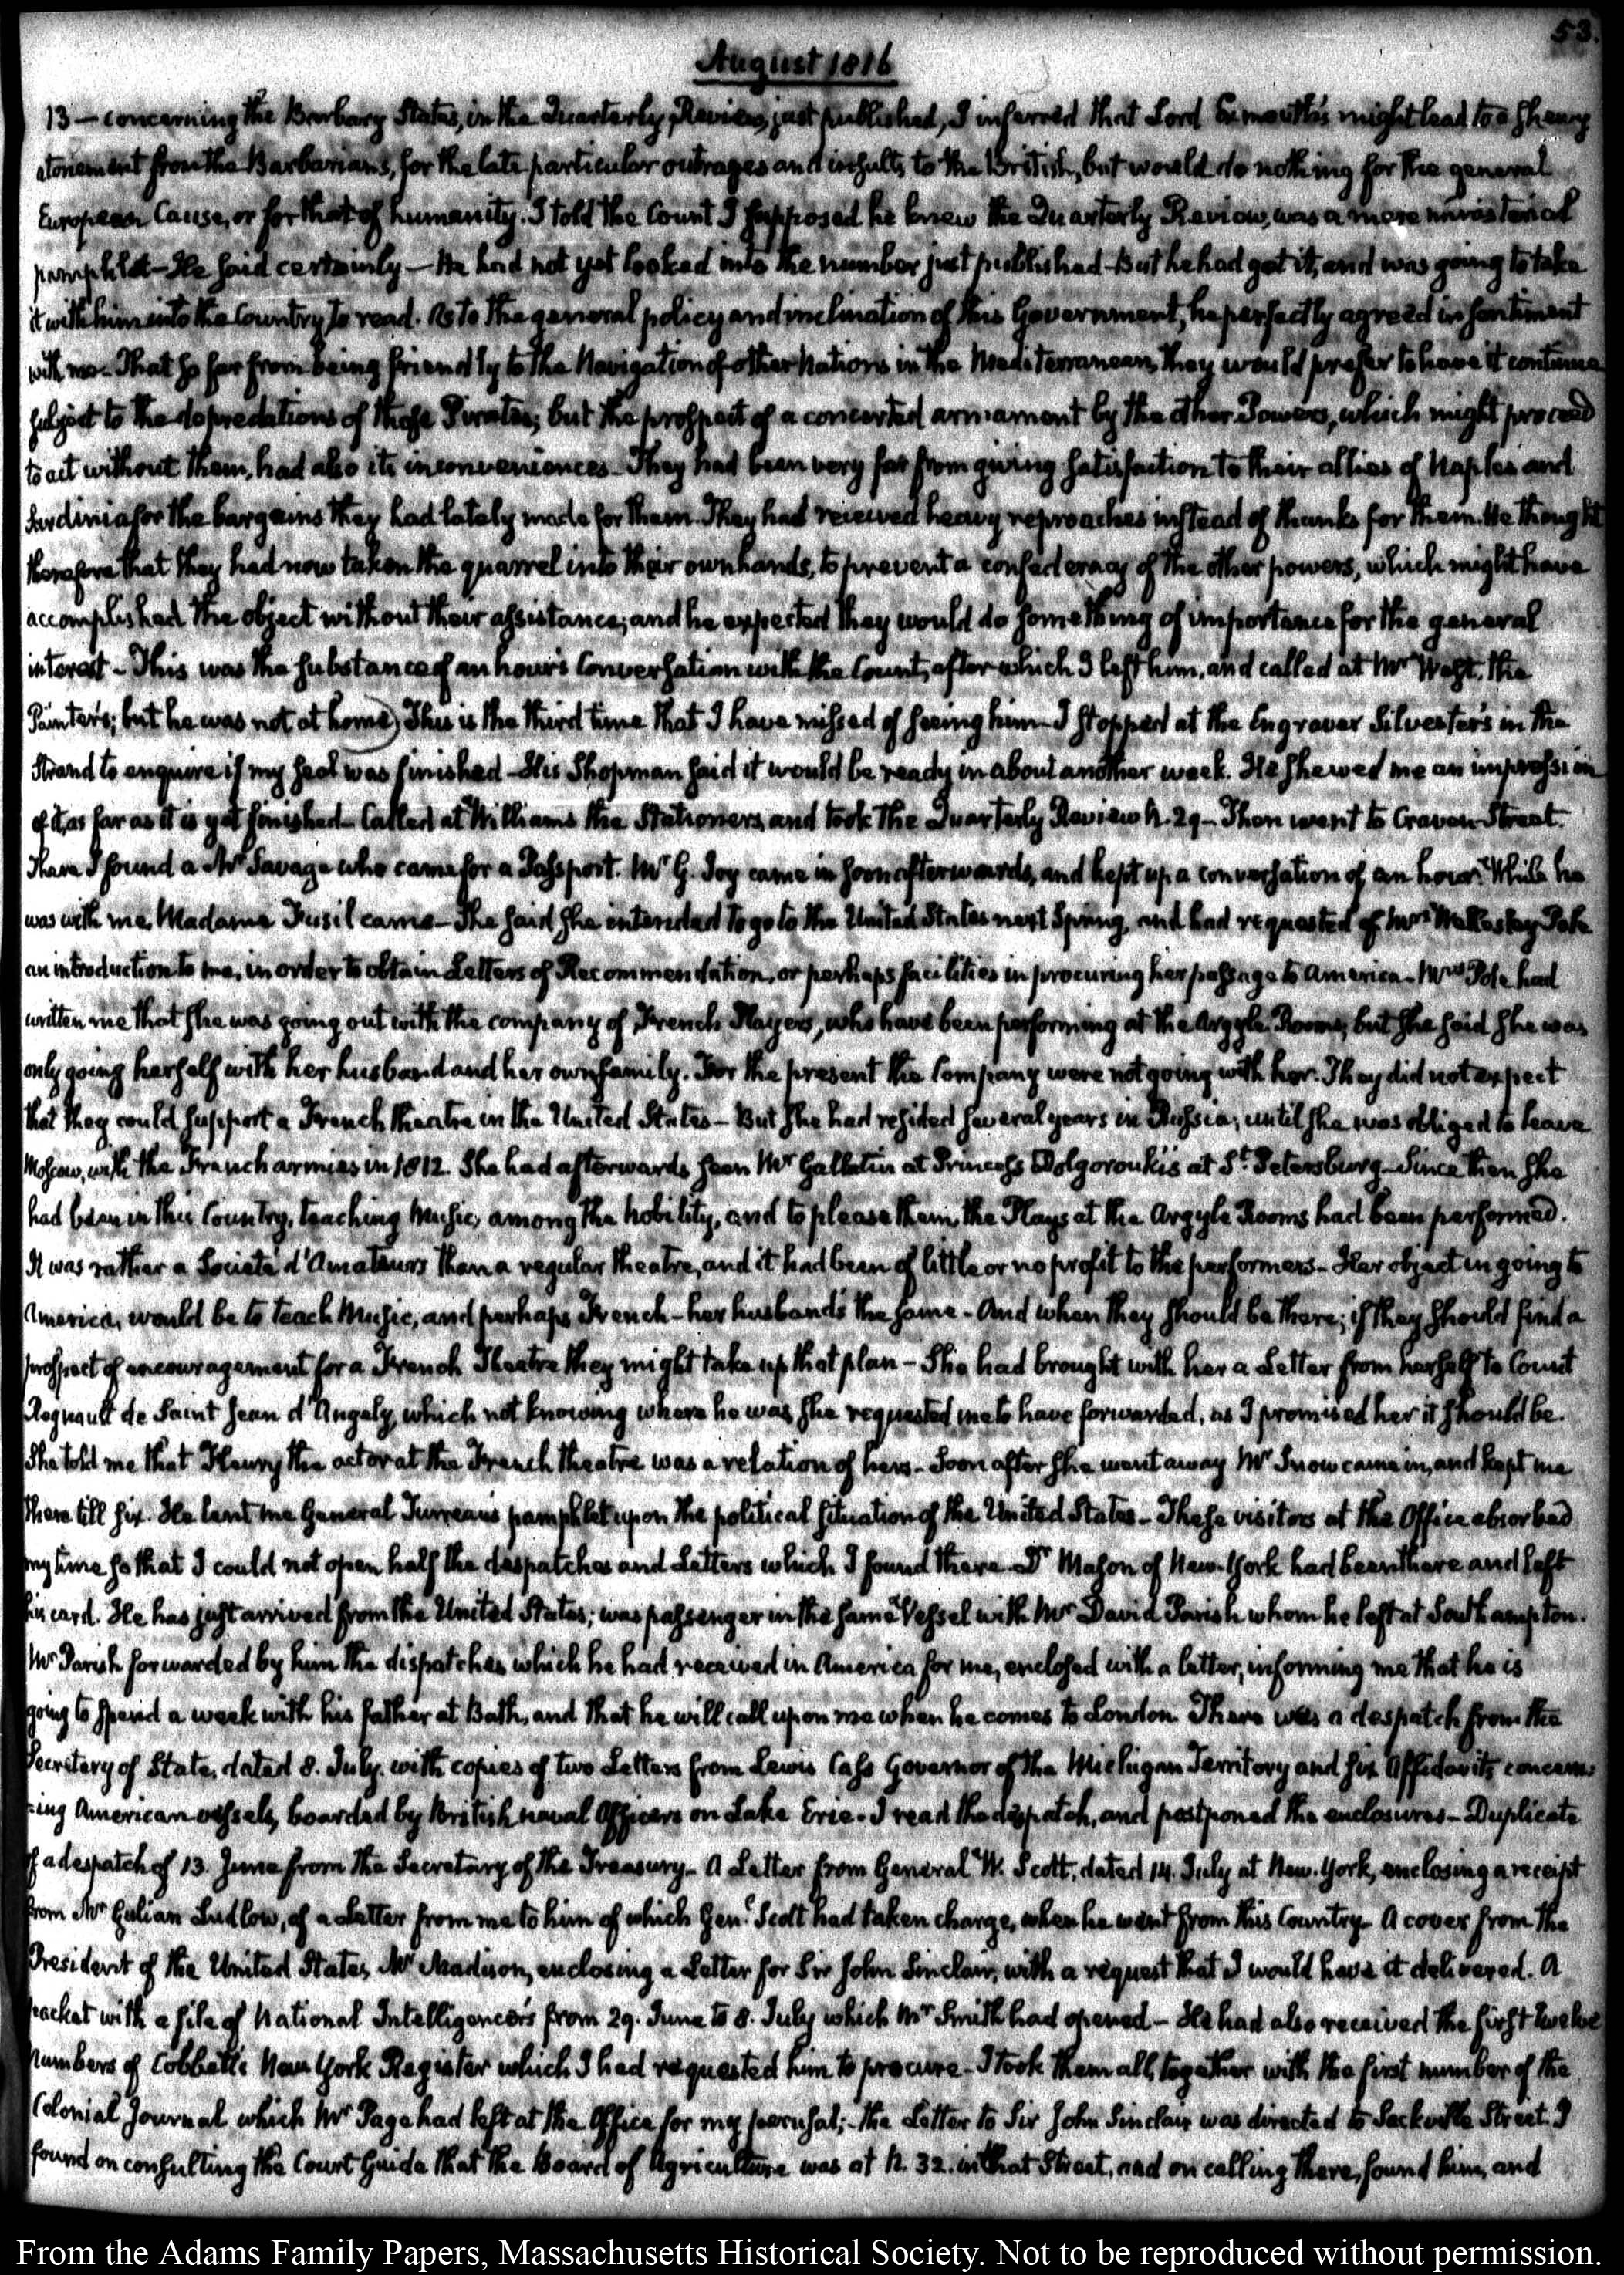 53.
August 1816
13 — concerning the Barbary States, in the Quarterly Review, just published, I inferred that Lord Exmouth's might lead to a
atonement from the Barbarians, for the late particular outrages and insults to the British, but would do nothing for the general
European Cause, or for that of humanity. I told the Count I supposed he knew the Quarterly Review, was a mere ministerial
pamphlet — He said certainly — He had not yet looked into the number just published — But he had got it, and was going to take
it with him into the Country to read. As to the general policy and inclination of this Government, he perfectly agreed in sentiment
with me. That so far from being friendly to the Navigation of other Nations in the Mediterranean, they would prefer to have it continue
subject to the depredations of those Pirates; but the prospect of a concerted armament by the other Powers, which might proceed
to act without them, had also its inconveniences — They had been very far from giving satisfaction to their allies of Naples and
Sardinia for the bargains they had lately made for them. They had received heavy reproaches instead of thanks for them. He thought
therefore that they had now taken the quarrel into their own hands, to prevent a confederacy of the other powers, which might have
accomplished the object without their assistance; and he expected they would do something of importance for the general
interest — This was the substance of an hour's Conversation with the Count, after which I left him, and called at Mr West, the
Painter's; but he was not at home) This is the third time that I have missed of seeing him — I stopped at the Engraver Silvester's in the
Strand to enquire if my seal was finished — His Shopman said it would be ready in about another week. He shewed me an impression
of it, as far as it is yet finished — Called at Williams the Stationers, and took the Quarterly Review N. 29 — Then went to Craven Street.
There I found a Mr Savage who came for a Passport. Mr G. Joy came in soon afterwards, and kept up a conversation of an hour. While he
was with me, Madame Fusil came — She said she intended to go to the United States next Spring, and had requested of Mrs Wellesley Pole
an introduction to me, in order to obtain Letters of Recommendation, or perhaps facilities in procuring her passage to America — Mrs Pole had
written me that she was going out with the company of French Players, who have been performing at the Argyle Rooms, but she said she was
only going herself with her husband and her own family. For the present the Company were not going with her. They did not expect
that they could support a French theatre in the United States — But she had resided several years in Russia; until she was obliged to leave
Moscow, with the French armies in 1812. She had afterwards seen Mr Gallatin at Princess Dolgorouki's at St. Petersburg — Since then she
had been in this Country, teaching Music, among the Nobility, and to please them, the Plays at the Argyle Rooms had been performed.
It was rather a Société d'Amateurs than a regular theatre, and it had been of little or no profit to the performers — Her object in going to
America, would be to teach Music, and perhaps French — her husband's the same — And when they should be there; if they should find a
prospect of encouragement for a French Theatre they might take up that plan — She had brought with her a Letter from herself to Count
Regnault de Saint Jean d'Angely, which not knowing where he was, she requested me to have forwarded, as I promised her it should be.
She told me that Fleury the actor at the French theatre was a relation of hers — Soon after she went away Mr Snow came in, and kept me
there till six. He lent me General Turreau's pamphlet upon the political situation of the United States — These visitors at the Office absorbed
my time so that I could not open half the despatches and Letters which I found there — Dr Mason of New-York had been there and left
his card. He has just arrived from the United States; was passenger in the same Vessel with Mr David Parish whom he left at Southampton.
Mr Parish forwarded by him the dispatches which he had received in America for me, enclosed with a letter, informing me that he is
going to spend a week with his father at Bath, and that he will call upon me when he comes to London. There was a despatch from the
Secretary of State, dated 8. July, with copies of two Letters from Lewis Cass Governor of the Michigan Territory and six Affidavits concern-
-ing American vessels, boarded by British naval Officers on Lake Erie — I read the dispatch, and postponed the enclosures — Duplicate
of a despatch of 13. June from the Secretary of the Treasury — A Letter from General W. Scott, dated 14. July at New York, enclosing a receipt
from Mr Gulian Ludlow, of a Letter from me to him of which Genl. Scott had taken charge, when he went from this Country — A cover from the
President of the United States, Mr Madison, enclosing a Letter for Sir John Sinclair, with a request that I would have it delivered. A
packet with a file of National Intelligencer's from 29. June to 8. July which Mr Smith had opened — He had also received the first twelve
numbers of Cobbett's New York Register which I had requested him to procure — I took them all, together with the first number of the
Colonial Journal which Mr Page had left at the Office for my perusal; the Letter to Sir John Sinclair was directed to Sackville Street. I
found on consulting the Court Guide that the Board of Agriculture was at N. 32. in that Street, and on calling there, found him, and
From the Adams Family Papers, Massachusetts Historical Society. Not to be reproduced without permission.